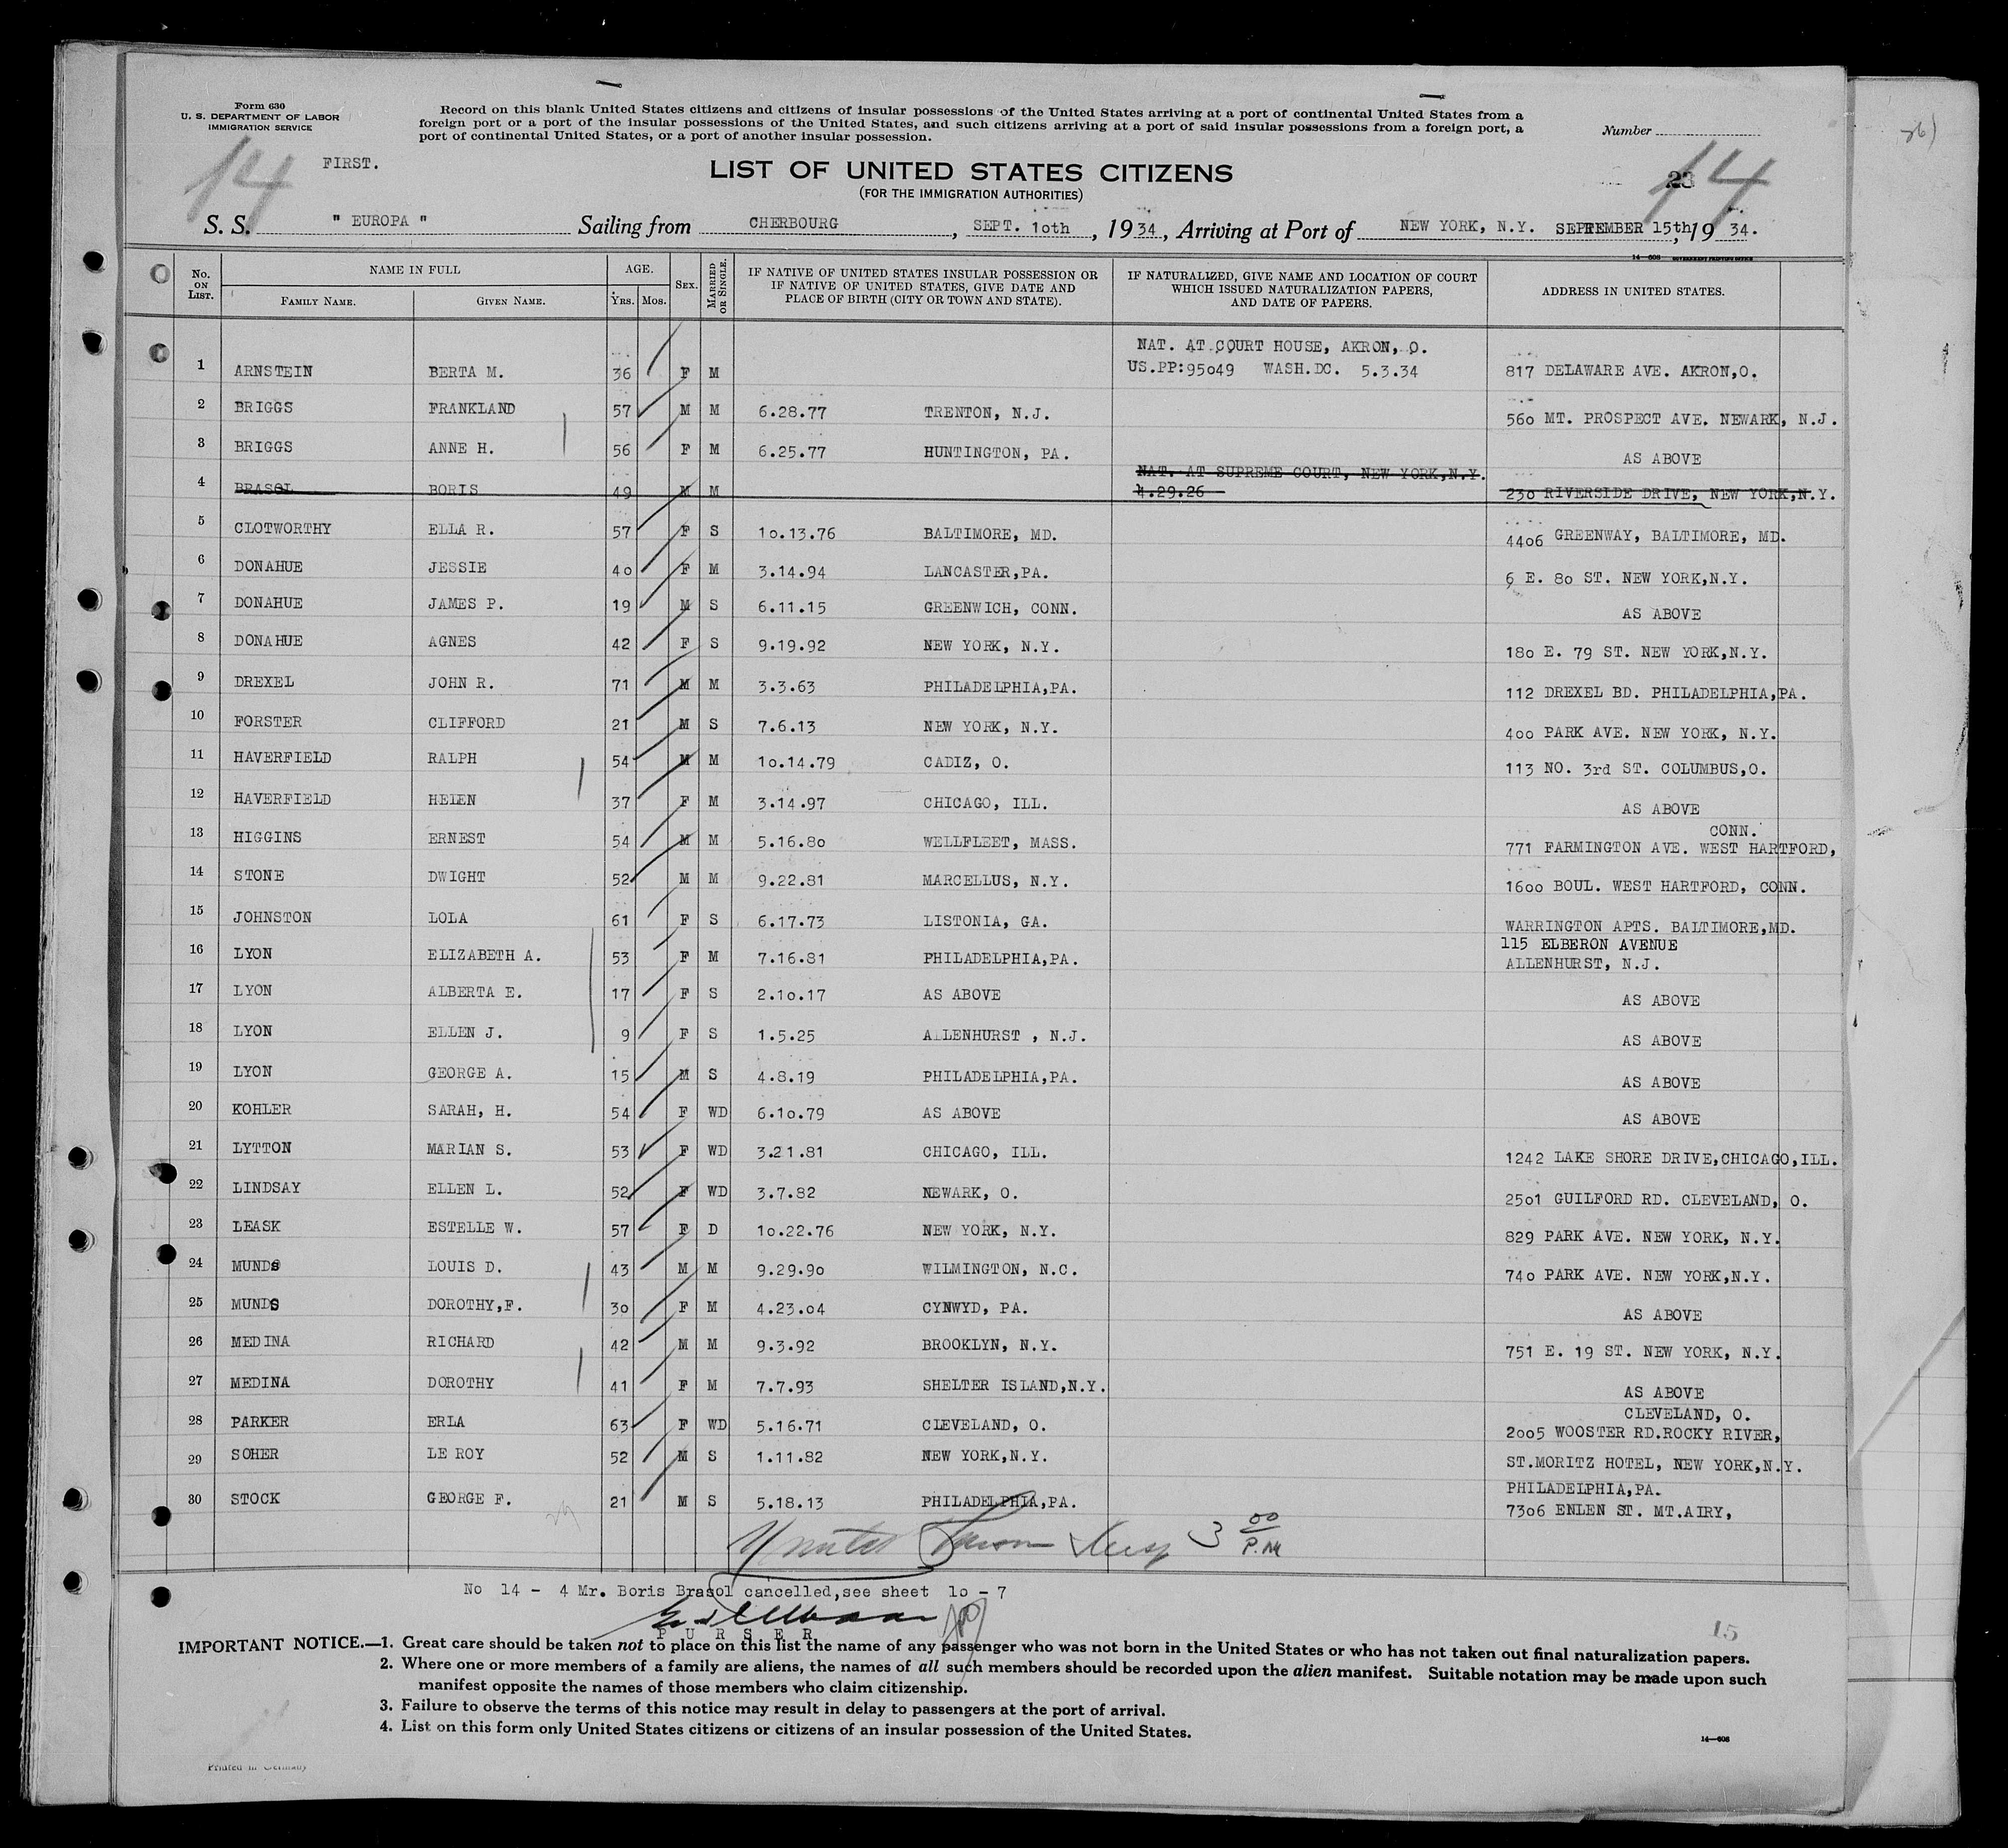 Form 630
U. S. DEPARTMENT OF LABOR
IMMIGRATION SERVICE
Record on this blank United States citizens and citizens of insular possessions of the United States arriving at a port of continental United States from a
foreign port or a port of the insular possessions of the United States, and such citizens arriving at a port of said insular possessions from a foreign port, a
port of continental United States, or a port of another insular possession.
Number
14 FIRST. 14
LIST OF UNITED STATES CITIZENS
(FOR THE IMMIGRATION AUTHORITIES)
S. S. " EUROPA " Sailing from CHERBOURG, SEPT. 1oth, 1934, Arriving at Port of NEW YORK, N.Y. SEPTEMBER 15th, 1934.
14—608 GOVERNMENT PRINTING OFFICE
No. ON LIST. NAME IN FULL FAMILY NAME. GIVEN NAME. AGE. YRS. MOS. SEX. MARRIED OR SINGLE. IF NATIVE OF UNITED STATES INSULAR POSSESSION OR IF NATIVE OF UNITED STATES, GIVE DATE AND PLACE OF BIRTH (CITY OR TOWN AND STATE). IF NATURALIZED, GIVE NAME AND LOCATION OF COURT WHICH ISSUED NATURALIZATION PAPERS, AND DATE OF PAPERS. ADDRESS IN UNITED STATES.
NAT. AT COURT HOUSE, AKRON, O.
1 ARNSTEIN BERTA M. 36 F M US.PP:95049 WASH.DC. 5.3.34 817 DELAWARE AVE. AKRON,O.
2 BRIGGS FRANKLAND 57 M M 6.28.77 TRENTON, N.J. 560 MT. PROSPECT AVE. NEWARK, N.J.
3 BRIGGS ANNE H. 56 F M 6.25.77 HUNTINGTON, PA. AS ABOVE
NAT. AT SUPREME COURT, NEW YORK,N.Y.
4 BRASOL BORIS 49 M M 4.29.26 230 RIVERSIDE DRIVE, NEW YORK,N.Y.
5 CLOTWORTHY ELLA R. 57 F S 10.13.76 BALTIMORE, MD. 4406 GREENWAY, BALTIMORE, MD.
6 DONAHUE JESSIE 40 F M 3.14.94 LANCASTER,PA. 6 E. 80 ST. NEW YORK,N.Y.
7 DONAHUE JAMES P. 19 M S 6.11.15 GREENWICH, CONN. AS ABOVE
8 DONAHUE AGNES 42 F S 9.19.92 NEW YORK, N.Y. 180 E. 79 ST. NEW YORK,N.Y.
9 DREXEL JOHN R. 71 M M 3.3.63 PHILADELPHIA,PA. 112 DREXEL BD. PHILADELPHIA,PA.
10 FORSTER CLIFFORD 21 M S 7.6.13 NEW YORK, N.Y. 400 PARK AVE. NEW YORK, N.Y.
11 HAVERFIELD RALPH 54 M M 10.14.79 CADIZ, O. 113 NO. 3rd ST. COLUMBUS,O.
12 HAVERFIELD HELEN 37 F M 3.14.97 CHICAGO, ILL. AS ABOVE
CONN.
13 HIGGINS ERNEST 54 M M 5.16.80 WELLFLEET, MASS. 771 FARMINGTON AVE. WEST HARTFORD,
14 STONE DWIGHT 52 M M 9.22.81 MARCELLUS, N.Y. 1600 BOUL. WEST HARTFORD, CONN.
15 JOHNSTON LOLA 61 F S 6.17.73 LISTONIA, GA. WARRINGTON APTS. BALTIMORE,MD.
115 ELBERON AVENUE
16 LYON ELIZABETH A. 53 F M 7.16.81 PHILADELPHIA,PA. ALLENHURST, N.J.
17 LYON ALBERTA E. 17 F S 2.10.17 AS ABOVE AS ABOVE
18 LYON ELLEN J. 9 F S 1.5.25 ALLENHURST , N.J. AS ABOVE
19 LYON GEORGE A. 15 M S 4.8.19 PHILADELPHIA,PA. AS ABOVE
20 KOHLER SARAH, H. 54 F WD 6.10.79 AS ABOVE AS ABOVE
21 LYTTON MARIAN S. 53 F WD 3.21.81 CHICAGO, ILL. 1242 LAKE SHORE DRIVE,CHICAGO,ILL.
22 LINDSAY ELLEN L. 52 F WD 3.7.82 NEWARK, O. 2501 GUILFORD RD. CLEVELAND, O.
23 LEASK ESTELLE W. 57 F D 10.22.76 NEW YORK, N.Y. 829 PARK AVE. NEW YORK, N.Y.
24 MUNDS LOUIS D. 43 M M 9.29.90 WILMINGTON, N.C. 740 PARK AVE. NEW YORK,N.Y.
25 MUNDS DOROTHY,F. 30 F M 4.23.04 CYNWYD, PA. AS ABOVE
26 MEDINA RICHARD 42 M M 9.3.92 BROOKLYN, N.Y. 751 E. 19 ST. NEW YORK, N.Y.
27 MEDINA DOROTHY 41 F M 7.7.93 SHELTER ISLAND,N.Y. AS ABOVE
CLEVELAND, O.
28 PARKER ERLA 63 F WD 5.16.71 CLEVELAND, O. 2005 WOOSTER RD.ROCKY RIVER,
29 SOHER LE ROY 52 M S 1.11.82 NEW YORK,N.Y. ST.MORITZ HOTEL, NEW YORK,N.Y.
PHILADELPHIA,PA.
30 STOCK GEORGE F. 21 M S 5.18.13 PHILADELPHIA,PA. 7306 ENLEN ST. MT.AIRY,
3 00 P.M
No 14 - 4 Mr. Boris Brasol cancelled,see sheet 1o - 7
P U R S E R
15
IMPORTANT NOTICE.—1. Great care should be taken not to place on this list the name of any passenger who was not born in the United States or who has not taken out final naturalization papers.
2. Where one or more members of a family are aliens, the names of all such members should be recorded upon the alien manifest. Suitable notation may be made upon such
manifest opposite the names of those members who claim citizenship.
3. Failure to observe the terms of this notice may result in delay to passengers at the port of arrival.
4. List on this form only United States citizens or citizens of an insular possession of the United States.
14—608
Printed in Germany